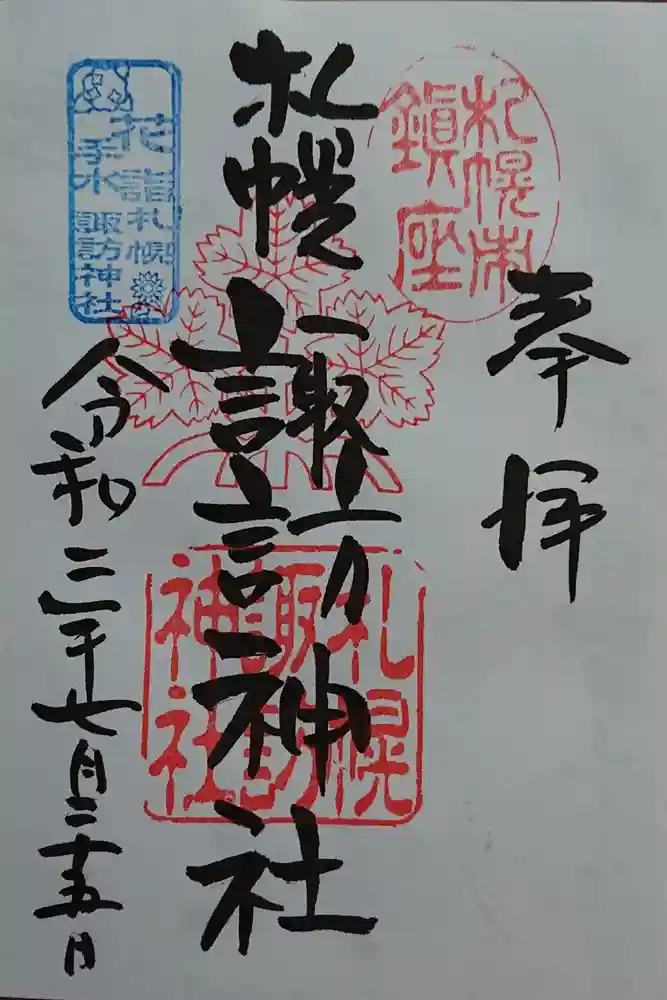 奉拝
札幌市
鎮座
札幌諏訪神社
札幌
諏訪
神社
花詣札幌
手水諏訪神社
令和三年七月二十五日